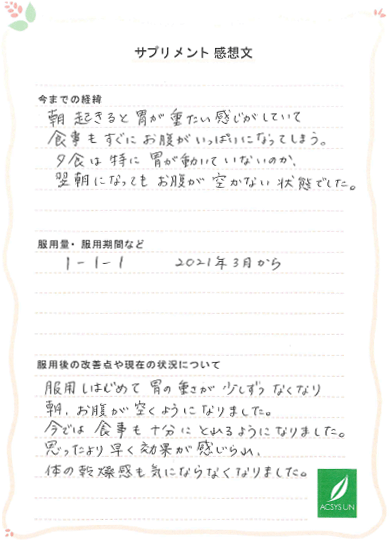 サプリメント 感想文
今までの経緯
朝 起きると 胃が 重たい 感じがしていて
食事も すぐに お腹が いっぱいに なってしまう。
夕食は 特に 胃が 動いて いないのか、
翌朝に なっても お腹が 空かない 状態でした。
服用量・服用期間など
1-1-1 2021年3月から
服用後の改善点や現在の状況について
服用しはじめて 胃の 重さが 少しずつ なくなり
朝、お腹が 空くようになりました。
今では 食事も 十分に とれるようになりました。
思ったより 早く 効果が 感じられ、
体の 乾燥感も 気にならなくなりました。
ACSYS UN